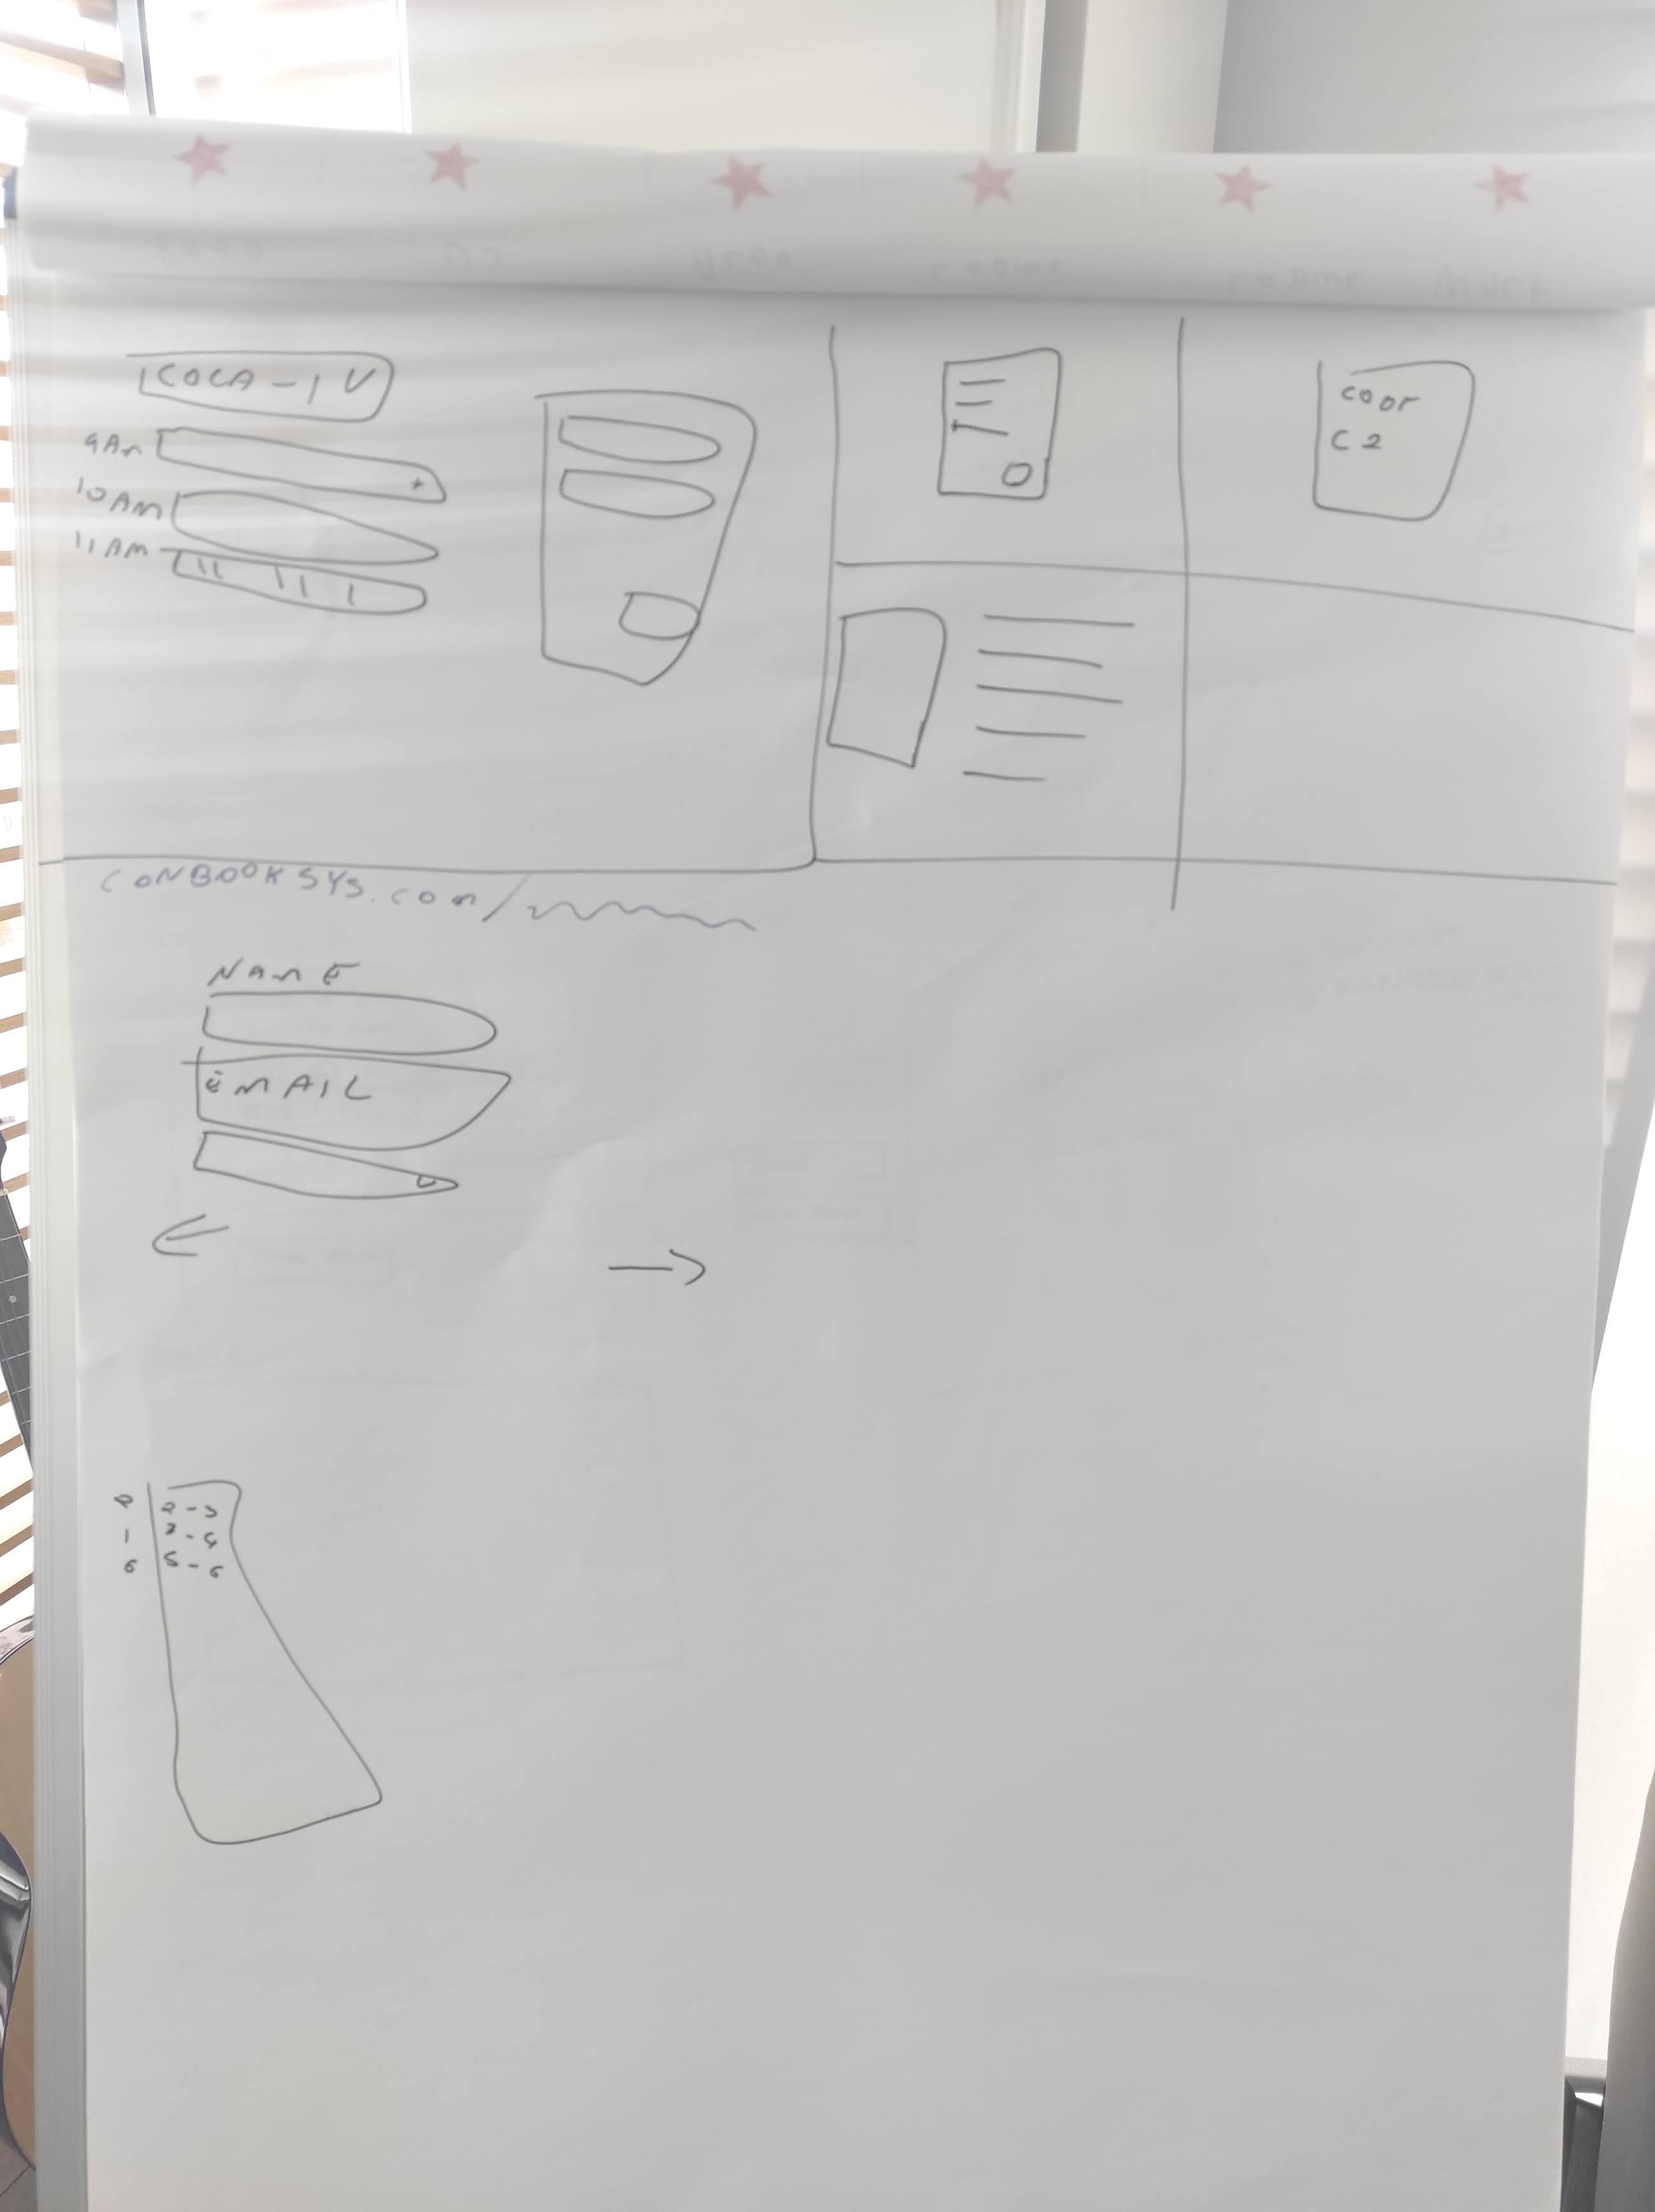 COCA-1 V
9AM
10AM
11AM
COOr
C2
CONBOOKSYS.com/
NAME
EMAIL
2-3
1 3-4
6 5-6